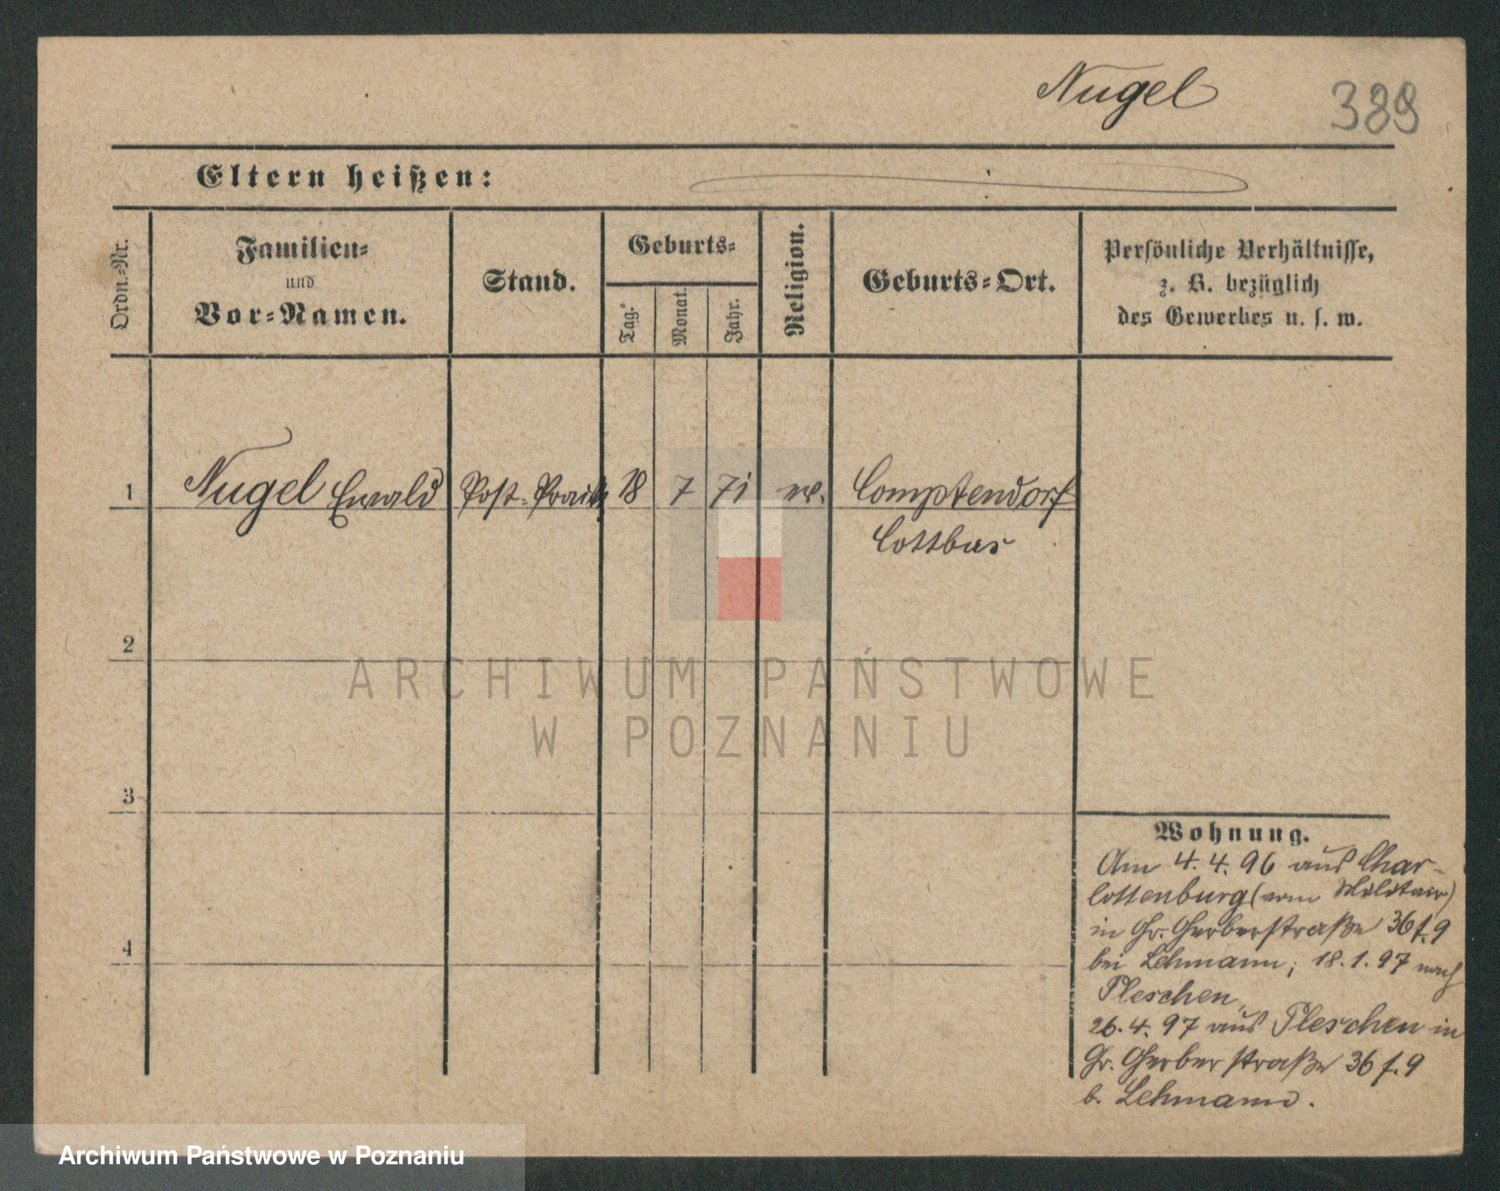 Nugel
389
Eltern heißen:
Ordn.-Nr.
Familien-
und
Vor-Namen.
Stand.
Geburts-
Tag.
Monat.
Jahr.
Religion.
Geburts-Ort.
Persönliche Verhältnisse,
z. B. bezüglich
des Gewerbes u. s. w.
1 Nugel Ewald Post- 18 7 71 ev. Comptendorf
Cottbus
2
3
4
Wohnung.
Am 4. 4. 96 aus Char-
lottenburg (vom Militair)
in Gr. Gerberstraße 36 f. 9
bei Lehmann; 18. 1. 97 nach
Pleschen,
26. 4. 97 aus Pleschen in
Gr. Gerberstraße 36 f. 9
b. Lehmann.
ARCHIWUM PAŃSTWOWE
W POZNANIU
Archiwum Państwowe w Poznaniu